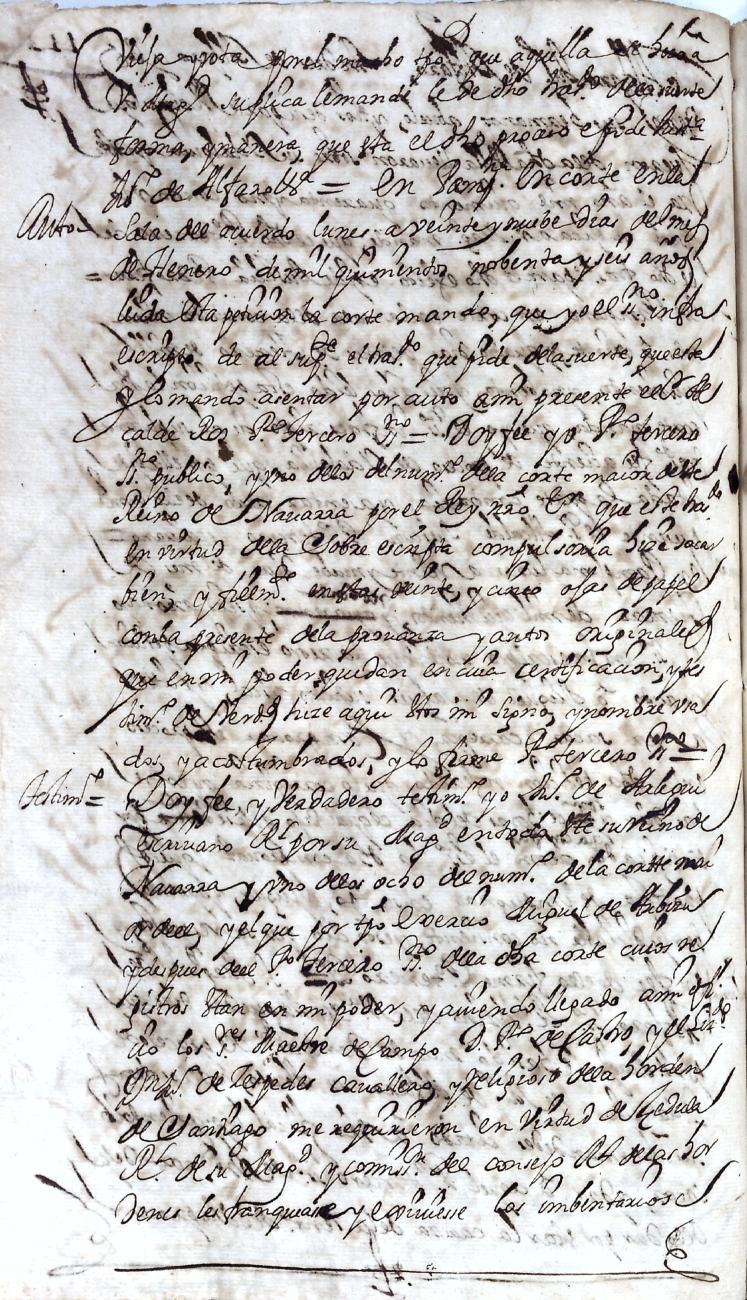 y rota por el mucho tpo que aquella se
suplica le mande se de dho tras.do de la suerte
forma, y manera, que esta el dho proceso e pide justa
de Alfaro = En Pamp.na En corte en la
Auto
Sala del acuerdo lunes a veinte y nuebe dias del mes
de Henero de mil quinientos nobenta y seis años
leida esta peticion la corte mando, que yo el ss.no infra
escripto de al sup.te el tras.do que pide de la suerte, que esta
y lo mando asentar por auto a mi presente el s.r Al
calde P.o tercero ss.no = Doy fee yo P.o tercero
ss.no publico, y uno de los del num.o de la corte maior deste
Reino de Navarra por el Rey nro s.r que este tras.do
en virtud de la Sobre escripta compulsoria hize sacar
bien, y fielm.te en estas veinte, y cinco ojas de papel
con la presente de la provanza y autos originales
que en mi poder quedan en cuia certificacion, y tes
tim.o de Verd.d hize aqui estos mi signo, y nombre usa
dos, y acostumbrados, y lo firme P.o tercero ss.no =
testim.o =
Doy fee, y Verdadero testim.o yo de
escrivano R.l por su Mag.d en toda este su reino de
Navarra y uno de los ocho del num.o de la cortte mai
or deel, y el que por tpo exercio Miguel de
y despues deel P.o tercero ss.no de la dha corte cuios re
gistros estan en mi poder, y aviendo llegado a mi ofi
cio los s.res Maestre de Campo D. P.o de Castro, y el Liz.do
de Zespedes cavallero, y religioso de la horden
de Santiago me requirieron en virtud de Zedula
R.l de su Mag.d y comiss.on del consejo R.l de las hor
denes les franquease y exiviesse los imbentarios